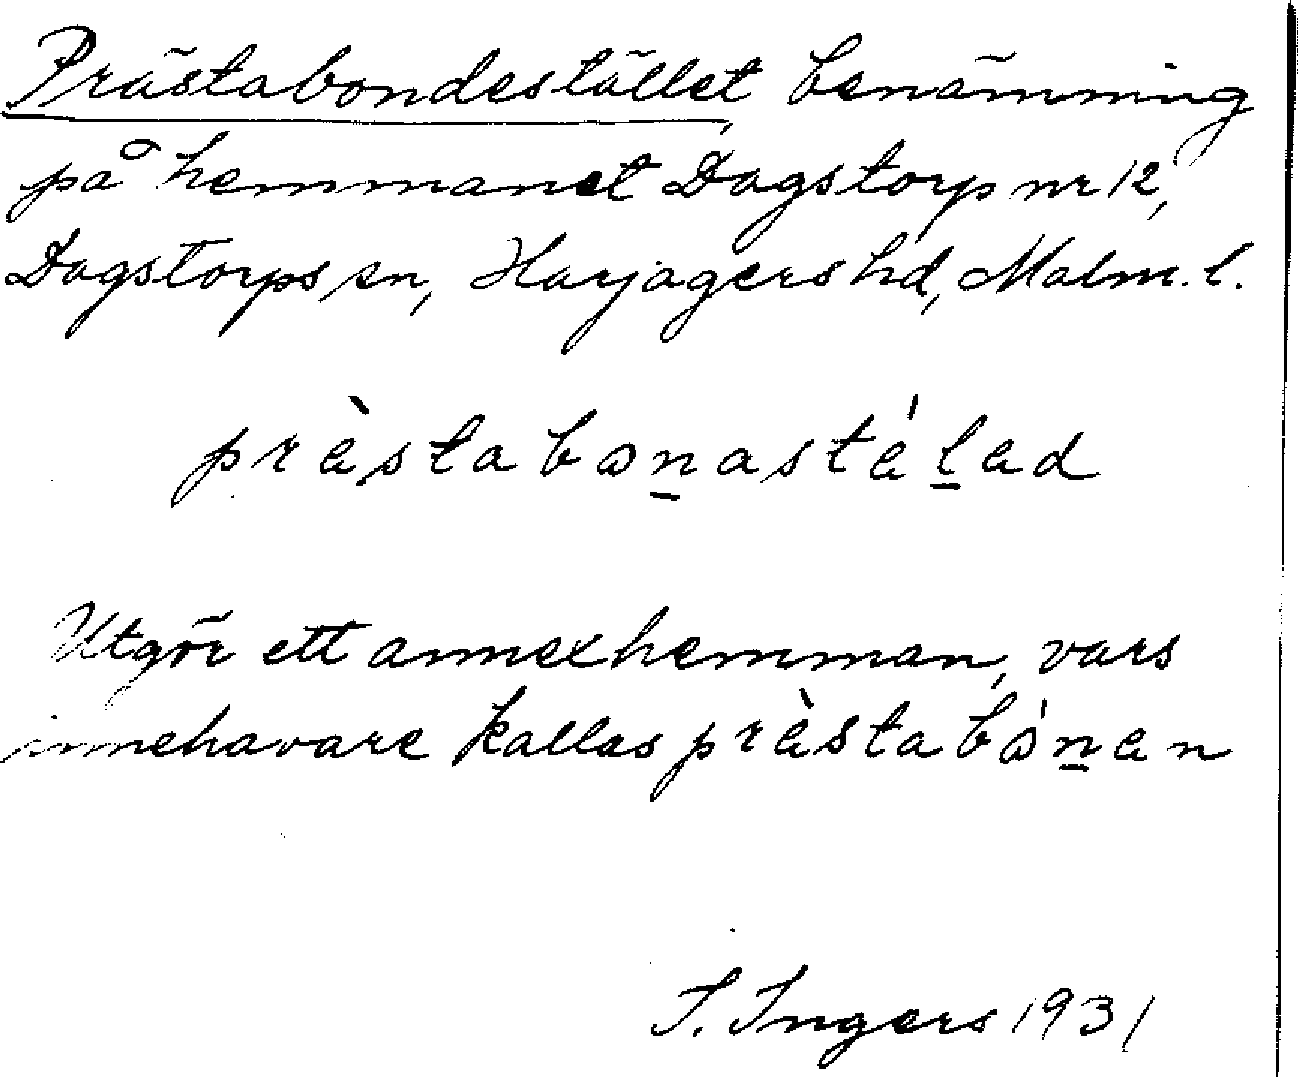 Prästabondestället, benämning
på hemmanet Dagstorp nr 12,
Dagstorps sn, Harjagers hd, Malm. l.
prὰstabon̲astɑ́l̲ad
Utgör ett annexhemman, vars
innehavare kallas prὰstabón̲an
I. Ingers 1931